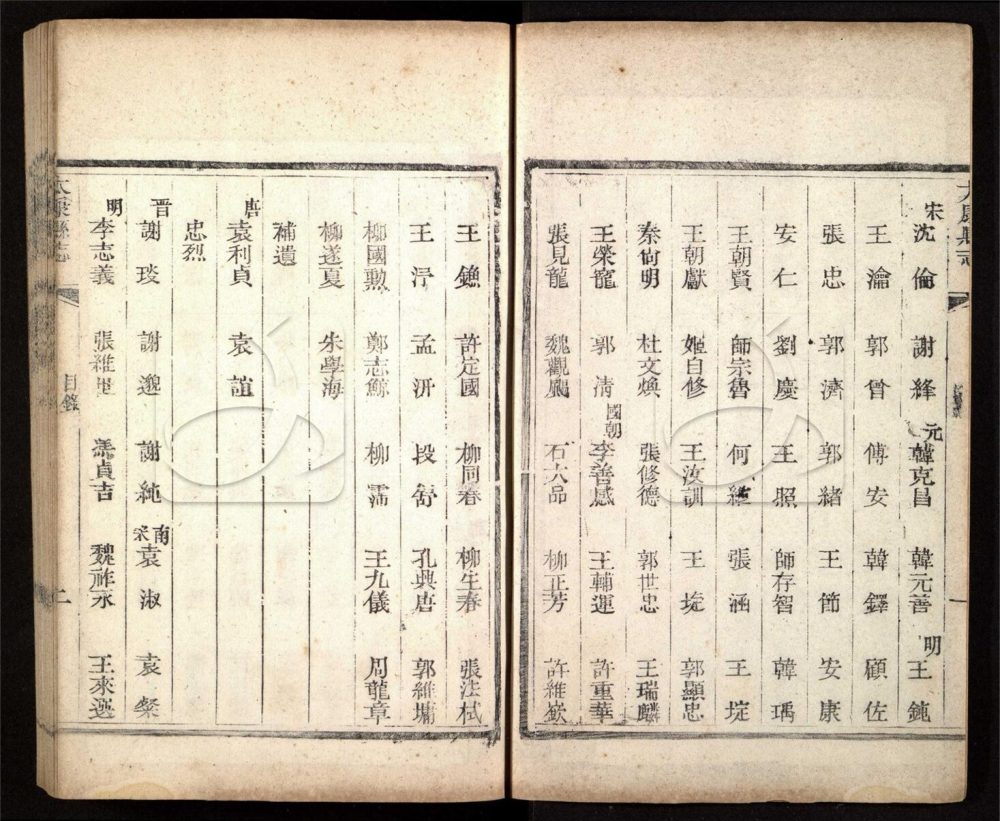 太康縣志
宋沈倫 謝絳 元韓克昌 韓元善 明王鈍
王瀹 郭曾 傅安 韓鐸 顧佐
張忠 郭濟 郭緒 王節 安康
安仁 劉慶 王照 師存智 韓瑀
王朝賢 師宗魯 何維 張涵 王埞
王朝獻 姬自修 王汝訓 王 郭顯忠
秦尙明 杜文煥 張修德 郭世忠 王瑞麟
王榮寵 郭淸 國朝李善感 王輔運 許重華
張見龍 魏觀颺 石大品 柳正芳 許維嶔
王鐩 許定國 柳同春 柳生春 張法栻
王浮 孟汧 段舒 孔興唐 郭維墉
柳國勲 鄭志鯨 柳濡 王九儀 周龍章
柳遂夏 朱學海
補遺
唐袁利貞 袁誼
忠烈
晋謝琰 謝邈 謝純 南宋袁淑 袁粲
明李志義 張維 馮貞吉 魏祚永 王來選
太康縣志 目錄 二